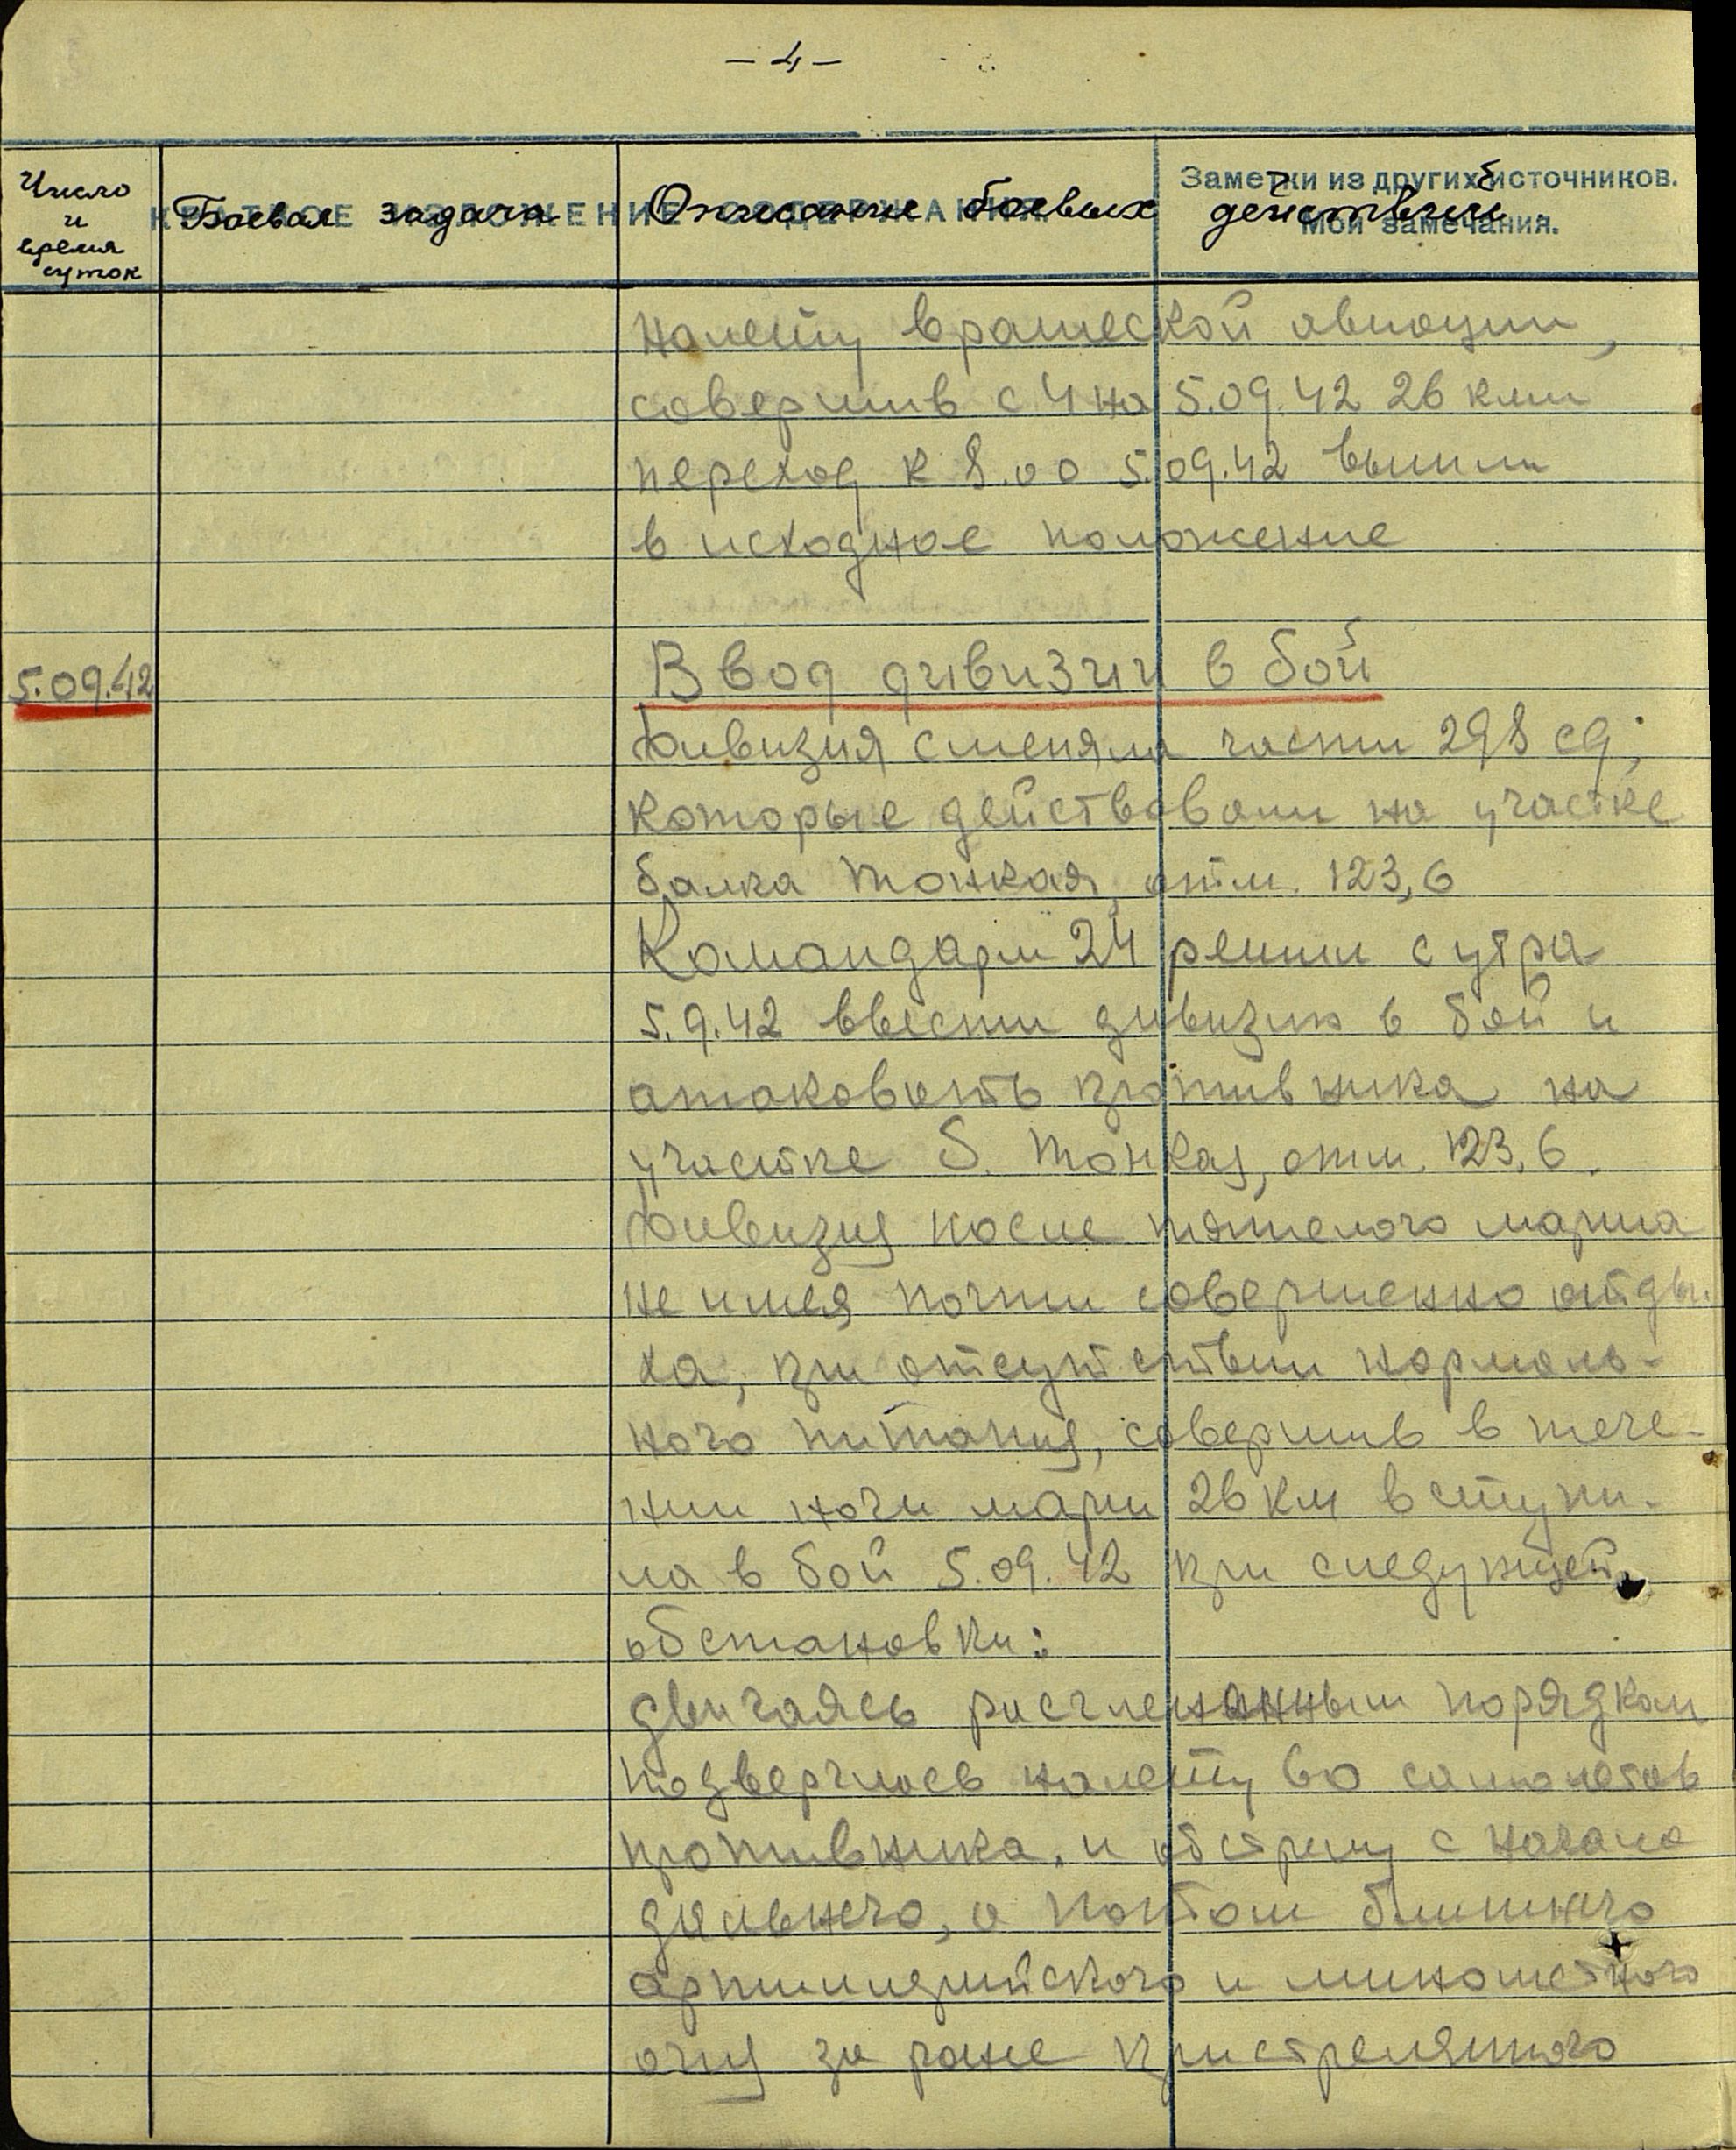 - 4 -
Число
и
время
суток
Боевая задача
Описание боевых действий
КРАТКОЕ ИЗЛОЖЕНИЕ СОДЕРЖАНИЯ
Заметки из других источников.
Мои замечания.
налету вражеской авиации,
совершив с 4 на 5.09.42 26 клм
переход к 8.00 5.09.42 вышли
в исходное положение
5.09.42
Ввод дивизии в бой
Дивизия сменяла части 298 сд,
которые действовали на участке
балка Тонкая, отм. 123,6
Командарм 24 решил с утра
5.9.42 ввести дивизию в бой и
атаковать противника на
участке б. Тонкая, отм. 123,6.
Дивизия после тяжелого марша
не имея почти совершенно отды-
ха, при отсутствии нормаль-
ного питания, совершив в тече-
нии ночи марш 26 км вступи-
ла в бой 5.09.42 при следующей
обстановки:
двигаясь расчлененным порядком
подверглась налету 60 самолетов
противника, и обстрелу с начала
дальнего, а потом ближнего
артиллерийского и минометного
огня за ранее пристрелянного